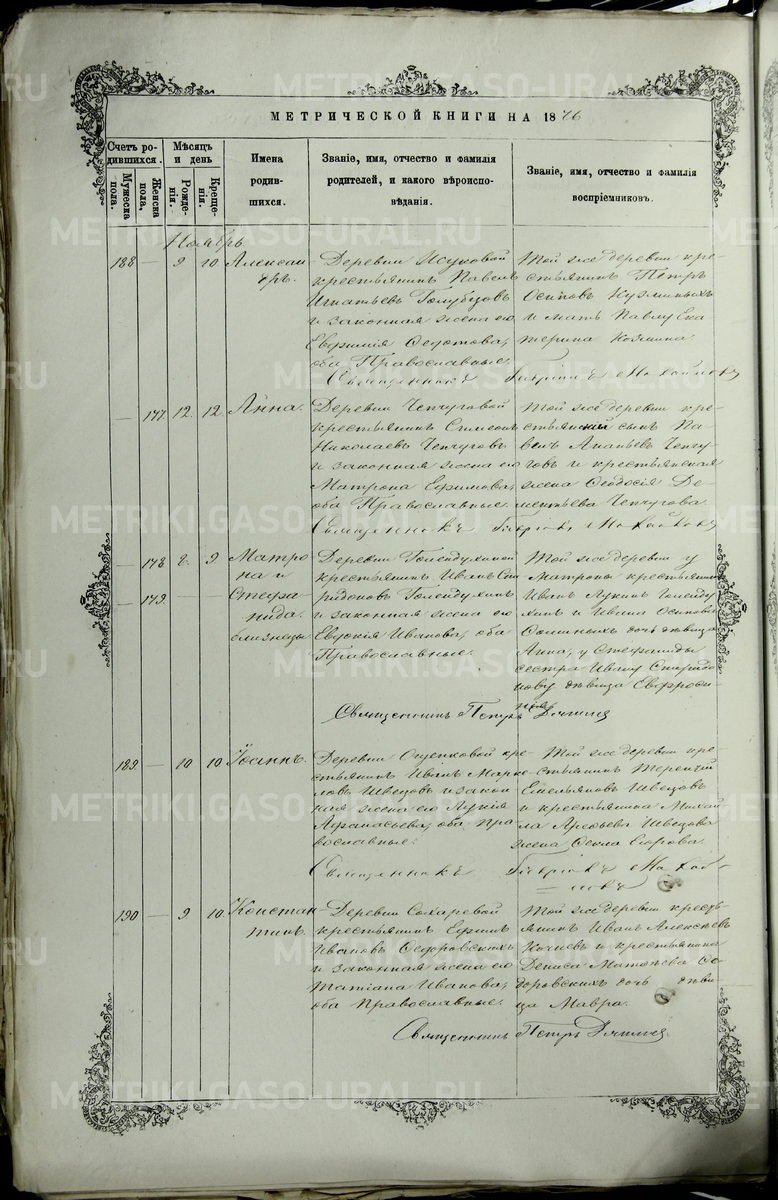 METRIKI.GASO-URAL.RU
МЕТРИЧЕСКОЙ КНИГИ НА 1876
Счетъ родившихся.
Мужеска пола.
Женска пола.
Мѣсяцъ и день
Рожденія.
Крещенія.
Имена родившихся.
Званіе, имя, отчество и фамилія родителей, и какого вѣроисповѣданія.
Званіе, имя, отчество и фамилія воспріемниковъ.
Ноябрь
188 — 9 10 Александръ.
Деревни
крестьянинъ Павелъ
Игнатьевъ Голубцовъ
и законная жена его
Евфимія Федотова,
оба Православные.
Той же деревни кре-
стьянинъ Петръ
Осиповъ Кузминыхъ
и мать Павлу Ека-
терина Козмина.
Священникъ
— 177. 12. 12. Анна.
Деревни Чепчуговой
крестьянинъ Симеонъ
Николаевъ Чепчуговъ
и законная жена его
Матрона Ефимова,
оба Православные.
Той же деревни кре-
стьянскій сынъ Па-
велъ Ананьевъ Чепчу-
говъ и крестьянская
жена Ѳеодосія Де-
ментьева Чепчугова.
Священникъ
— 178. 8. 9 Матро
на и
— 179. — — Стефа
нида.
близнецы
Деревни Голендухиной
крестьянинъ Иванъ Спи
ридоновъ Голендухинъ
и законная жена его
Евдокія Иванова, оба
Православные.
Той же деревни у
Матроны крестьянинъ
Иванъ Лукинъ Голенду
хинъ и Ивана Осипова
дочь дѣвица
Анна, у Стефаниды
сестра Ивану Спиридо
нову дѣвица Евфроси-
нія.
Священникъ Петръ
189. — 10 10. Іоаннъ.
Деревни Ощепковой кре-
стьянинъ Иванъ Марке
ловъ Швецовъ и закон
ная жена его Лукія
Афанасьева, оба Пра
вославные.
Той же деревни кре
стьянинъ Терентій
Емельяновъ Швецовъ
и крестьянина Михаи
ла Арефьева Швецова
жена Ѳекла Егорова.
Священникъ
190 — 9. 10. Констан
тинъ.
Деревни Сохаревой
крестьянинъ Ефимъ
Ивановъ Федоровскихъ
и законная жена его
Татіана Иванова,
оба православные.
Той же деревни кресть
янинъ Иванъ Алексѣевъ
и крестьянина
Дениса Матвѣева Фе
доровскихъ дочь дѣви
ца Мавра.
Священникъ Петръ